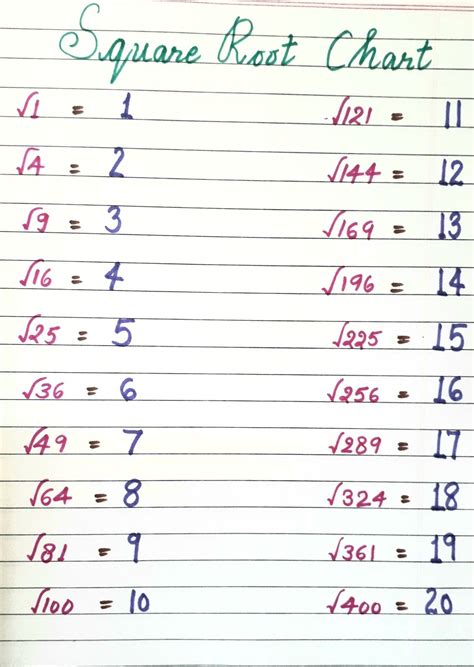 Square Root Chart
√1 = 1
√4 = 2
√9 = 3
√16 = 4
√25 = 5
√36 = 6
√49 = 7
√64 = 8
√81 = 9
√100 = 10
√121 = 11
√144 = 12
√169 = 13
√196 = 14
√225 = 15
√256 = 16
√289 = 17
√324 = 18
√361 = 19
√400 = 20